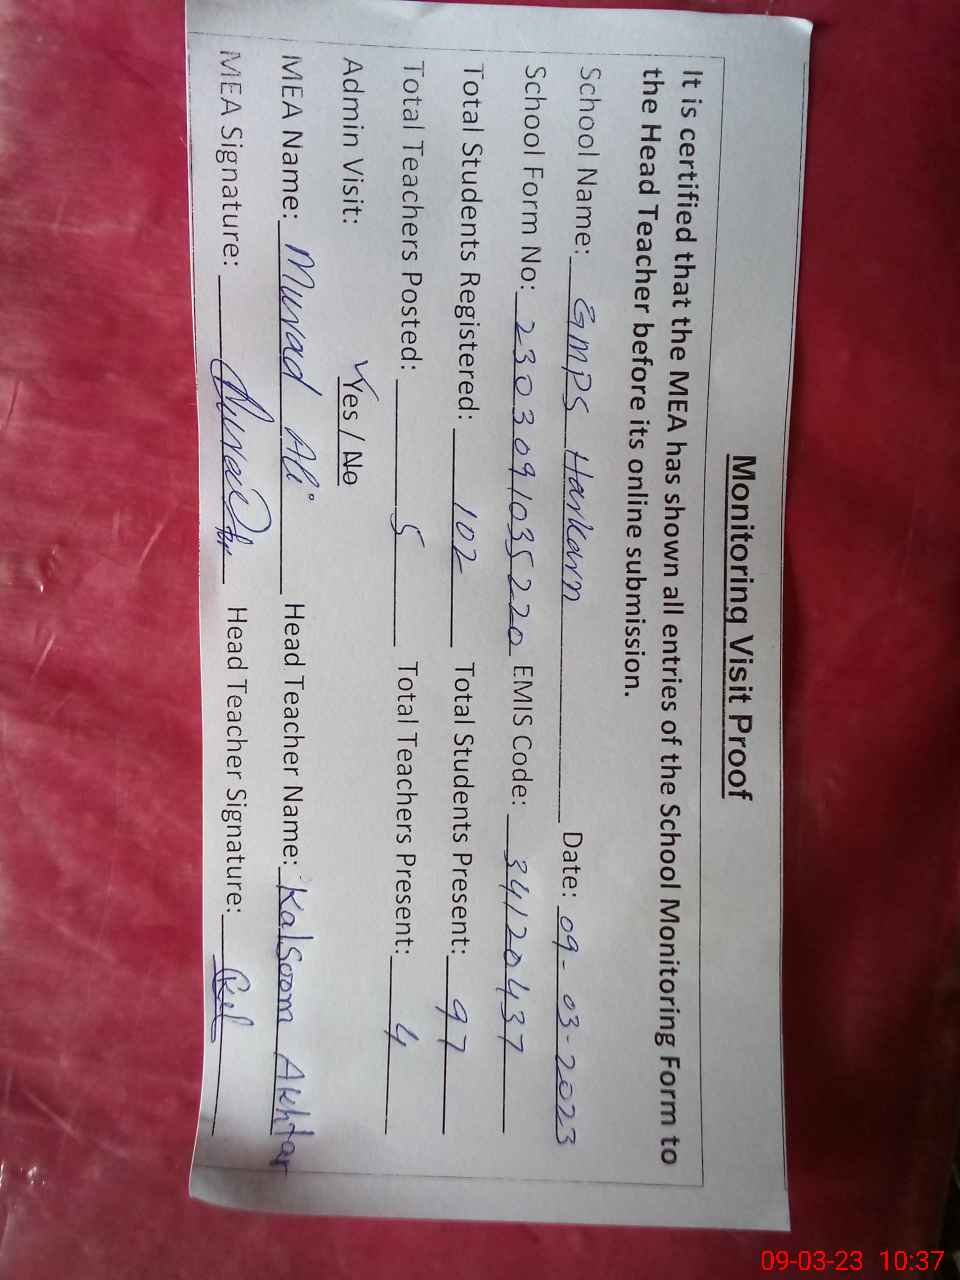 Monitoring Visit Proof
It is certified that the MEA has shown all entries of the School Monitoring Form to
the Head Teacher before its online submission.
School Name: GMPS Harkarn Date: 09-03-2023
School Form No: 2303091035220 EMIS Code: 34120437
Total Students Registered: 102 Total Students Present: 97
Total Teachers Posted: 5 Total Teachers Present: 4
Admin Visit: Yes / No
MEA Name: Murad Ali Head Teacher Name: Kalsoom Akhtar
MEA Signature: Head Teacher Signature:
09-03-23 10:37